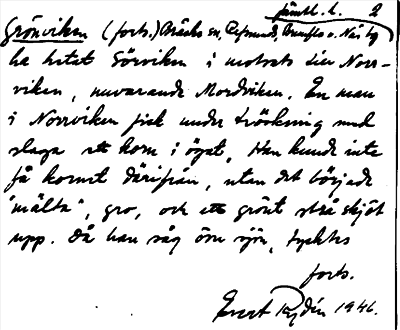 Jämtl. l. 2
Grönviken (forts.) Bräcke sn, Refsund, Brunflo o. Näs tg
ha hetat Sörviken i motsats till Norr-
viken, nuvarande Mordviken. En man
i Norrviken fick under tröskning med
slaga ett korn i ögat. Han kunde inte
få kornet därifrån, utan det började
"mälta", gro, och ett grönt strå sköt
upp. Då han såg öm sjön, tycktes
forts.
Evert Rydén 1946.